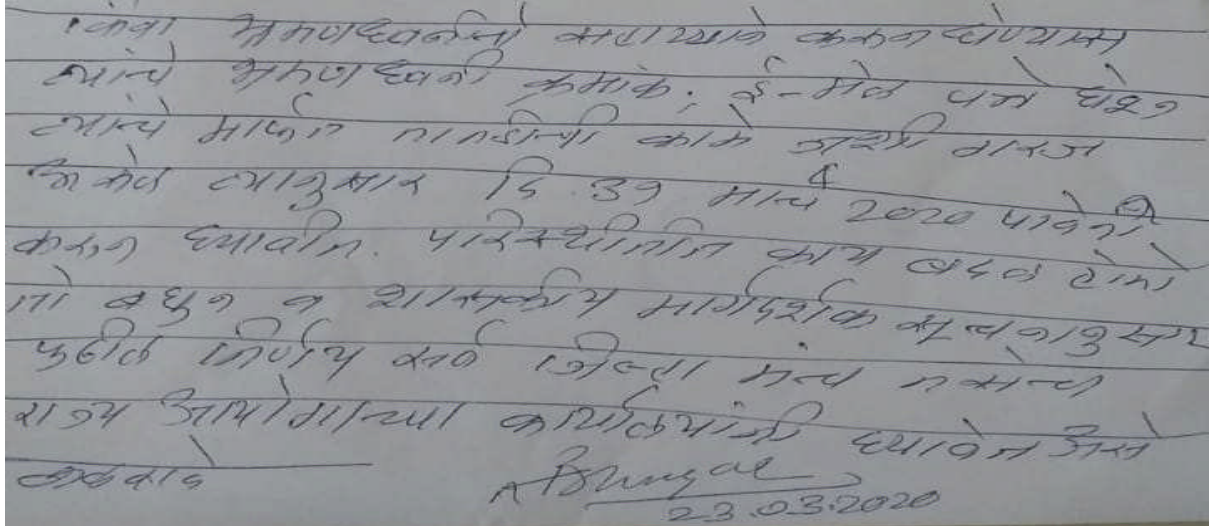 किंवा भ्रमणध्वनीनी कळवून घेण्यास
त्यांचे भ्रमणध्वनी क्रमांक, ई-मेल पत्ते घेऊन
त्यांचे मार्फत तातडीची कामे जशी गरज
असेल त्यानुसार दि. 31 मार्च 2020 पावेतो
करून घ्यावीत. परिस्थितीत काय बदल होतो
तो बघून व शासकीय मार्गदर्शक सूचनानुसार
पुढील निर्णय सर्व जिल्हा मंच तसेच
राज्य आयोगाच्या कार्यालयांनी घ्यावेत असे
कळवावे
23.03.2020